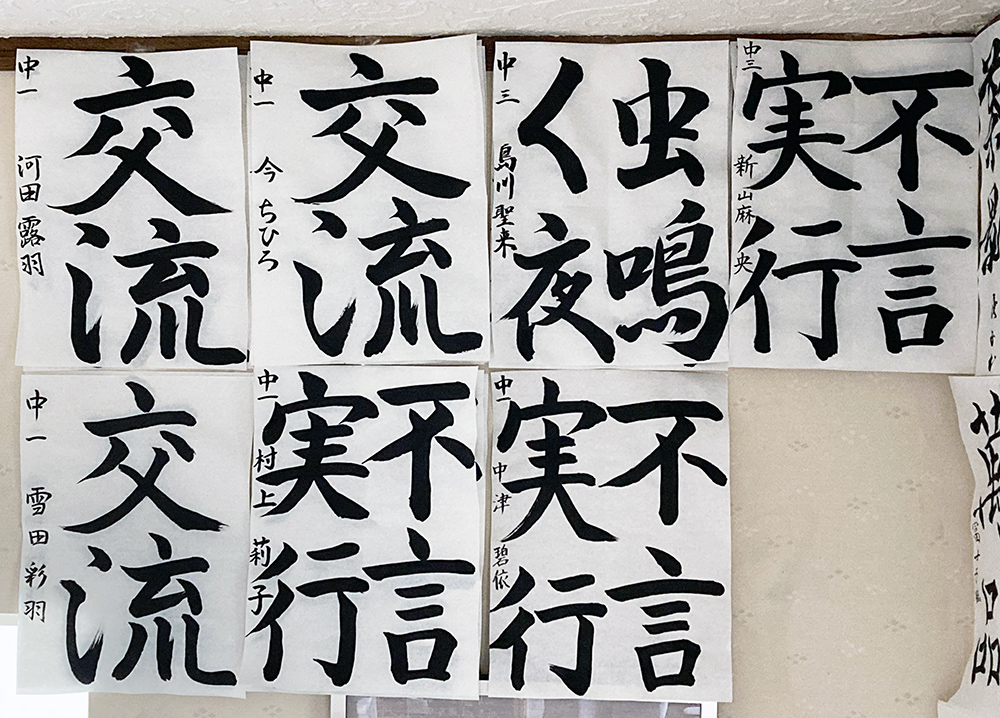 交流
中一 河田 露羽
交流
中一 今 ちひろ
虫鳴
く夜
中三 島川聖来
不言
実行
中三 新山麻央
交流
中一 雪田彩羽
不言
実行
中一 村上 莉子
不言
実行
中一 中津 碧依